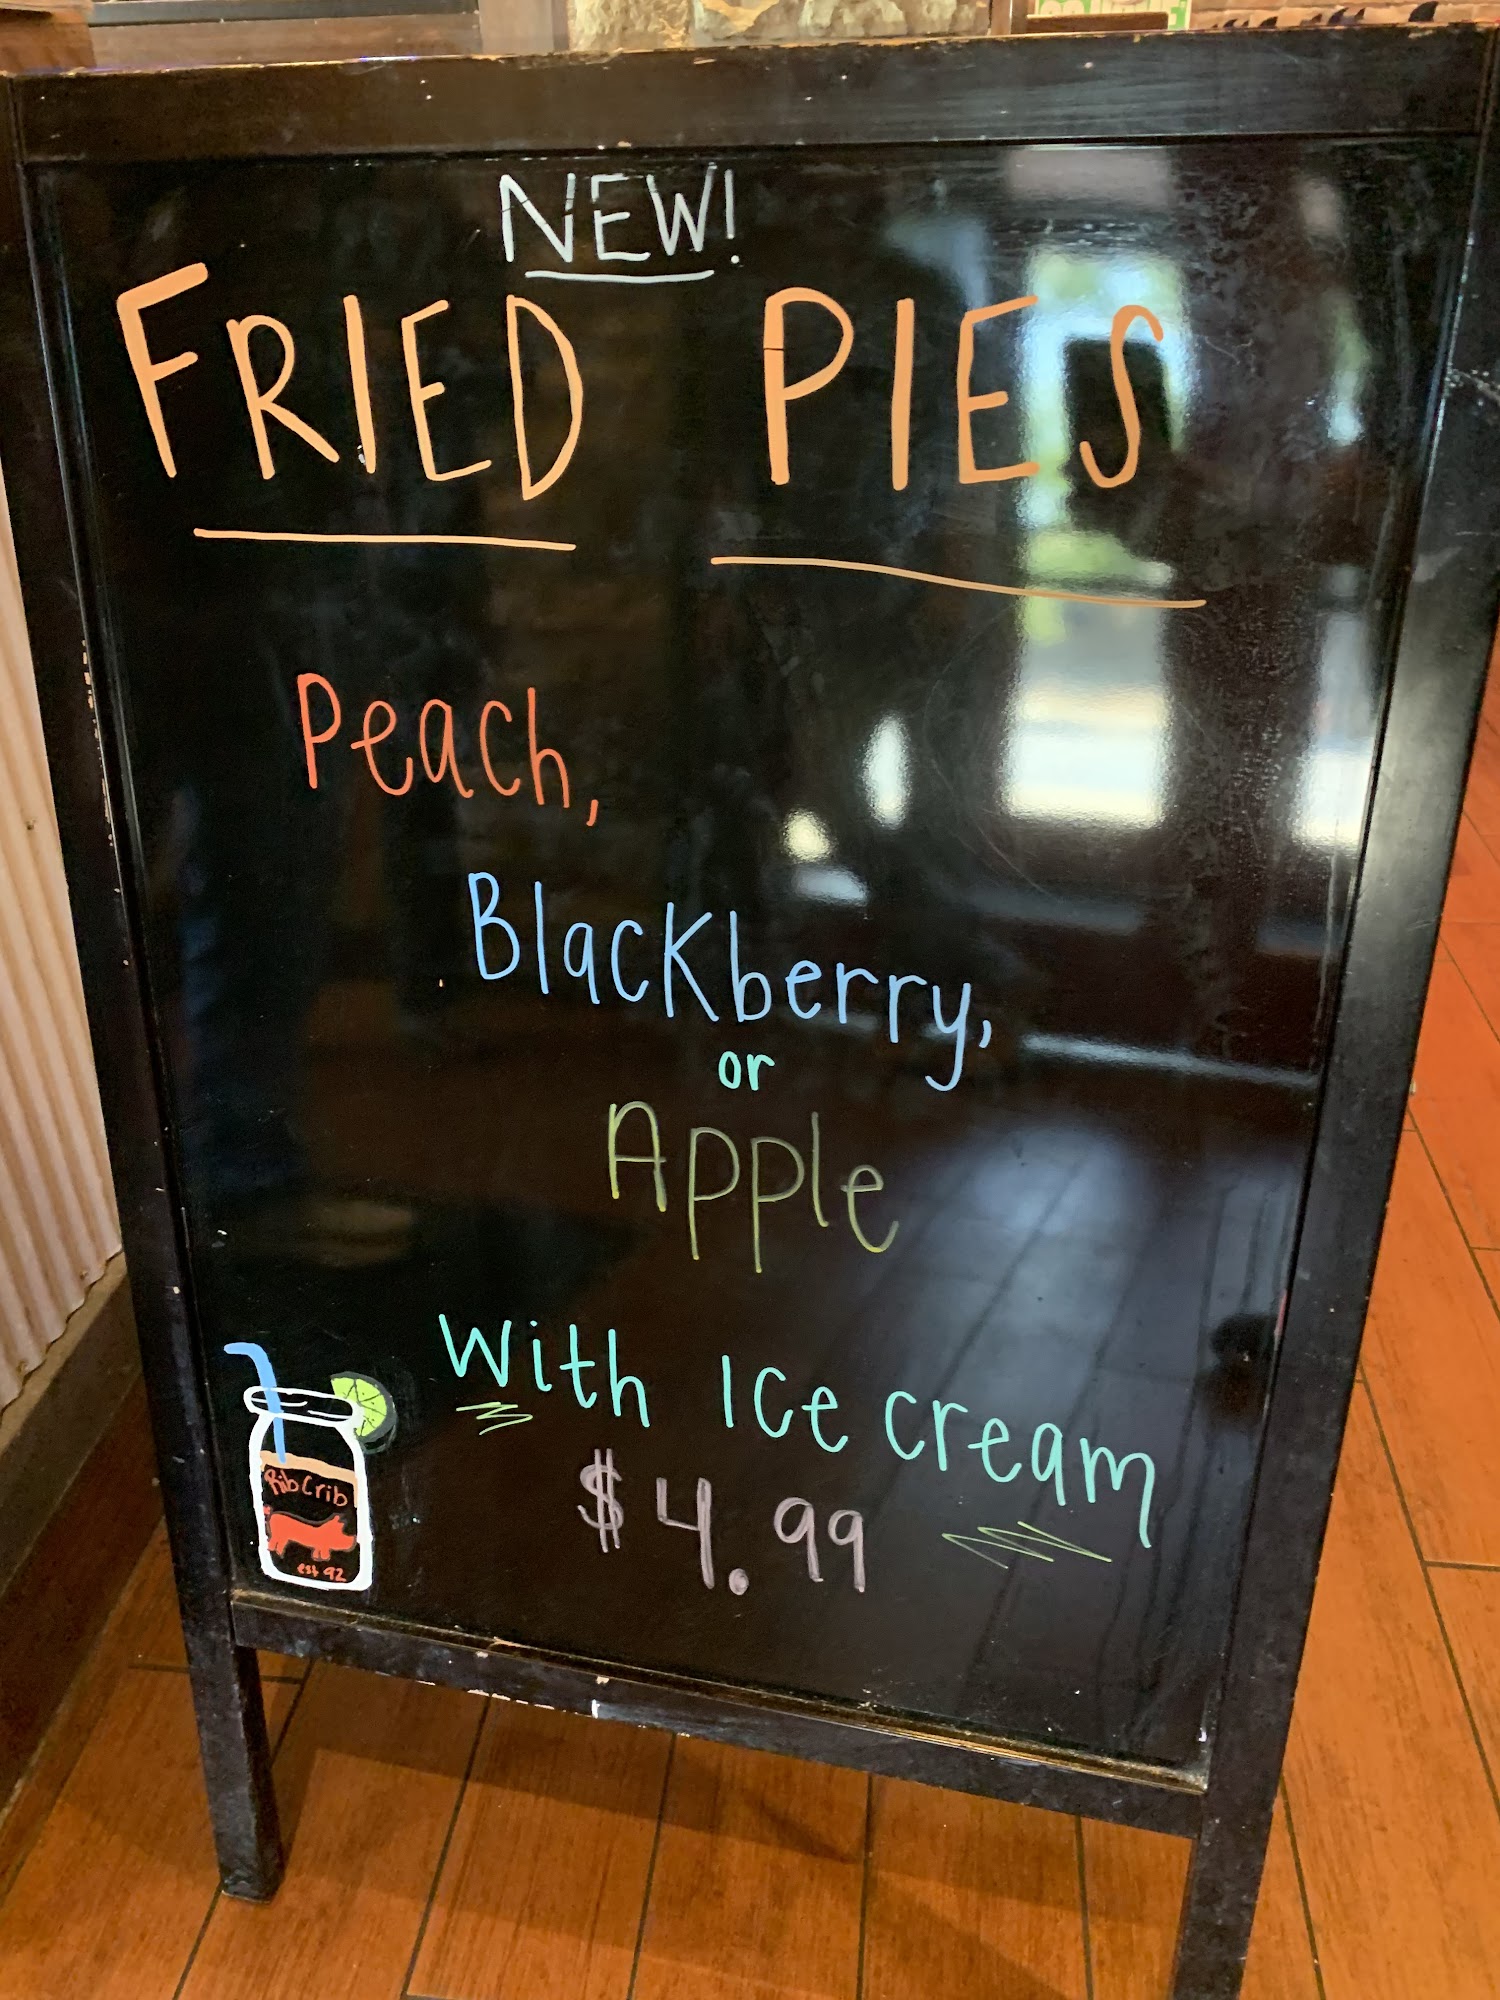 NEW!
FRIED PIES
Peach,
Blackberry,
or
Apple
with Ice cream
$4.99
RibCrib
est 92